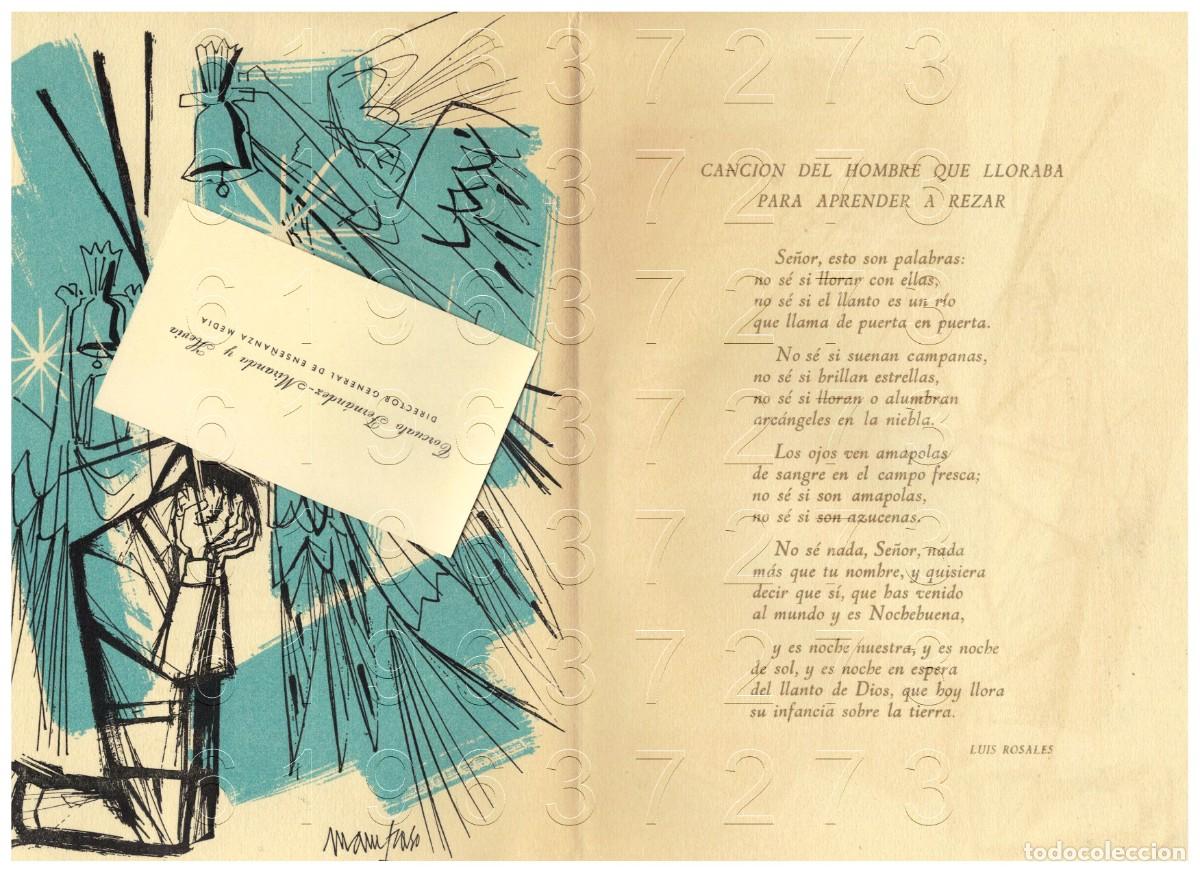 Torcuato Fernández-Miranda y Hevia
DIRECTOR GENERAL DE ENSEÑANZA MEDIA
CANCION DEL HOMBRE QUE LLORABA
PARA APRENDER A REZAR
Señor, esto son palabras:
no sé si llorar con ellas,
no sé si el llanto es un río
que llama de puerta en puerta.
No sé si suenan campanas,
no sé si brillan estrellas,
no sé si lloran o alumbran
arcángeles en la niebla.
Los ojos ven amapolas
de sangre en el campo fresca;
no sé si son amapolas,
no sé si son azucenas.
No sé nada, Señor, nada
más que tu nombre, y quisiera
decir que sí, que has venido
al mundo y es Nochebuena,
y es noche nuestra, y es noche
de sol, y es noche en espera
del llanto de Dios, que hoy llora
su infancia sobre la tierra.
LUIS ROSALES
619637273
619637273
619637273
619637273
619637273
619637273
619637273
todocoleccion